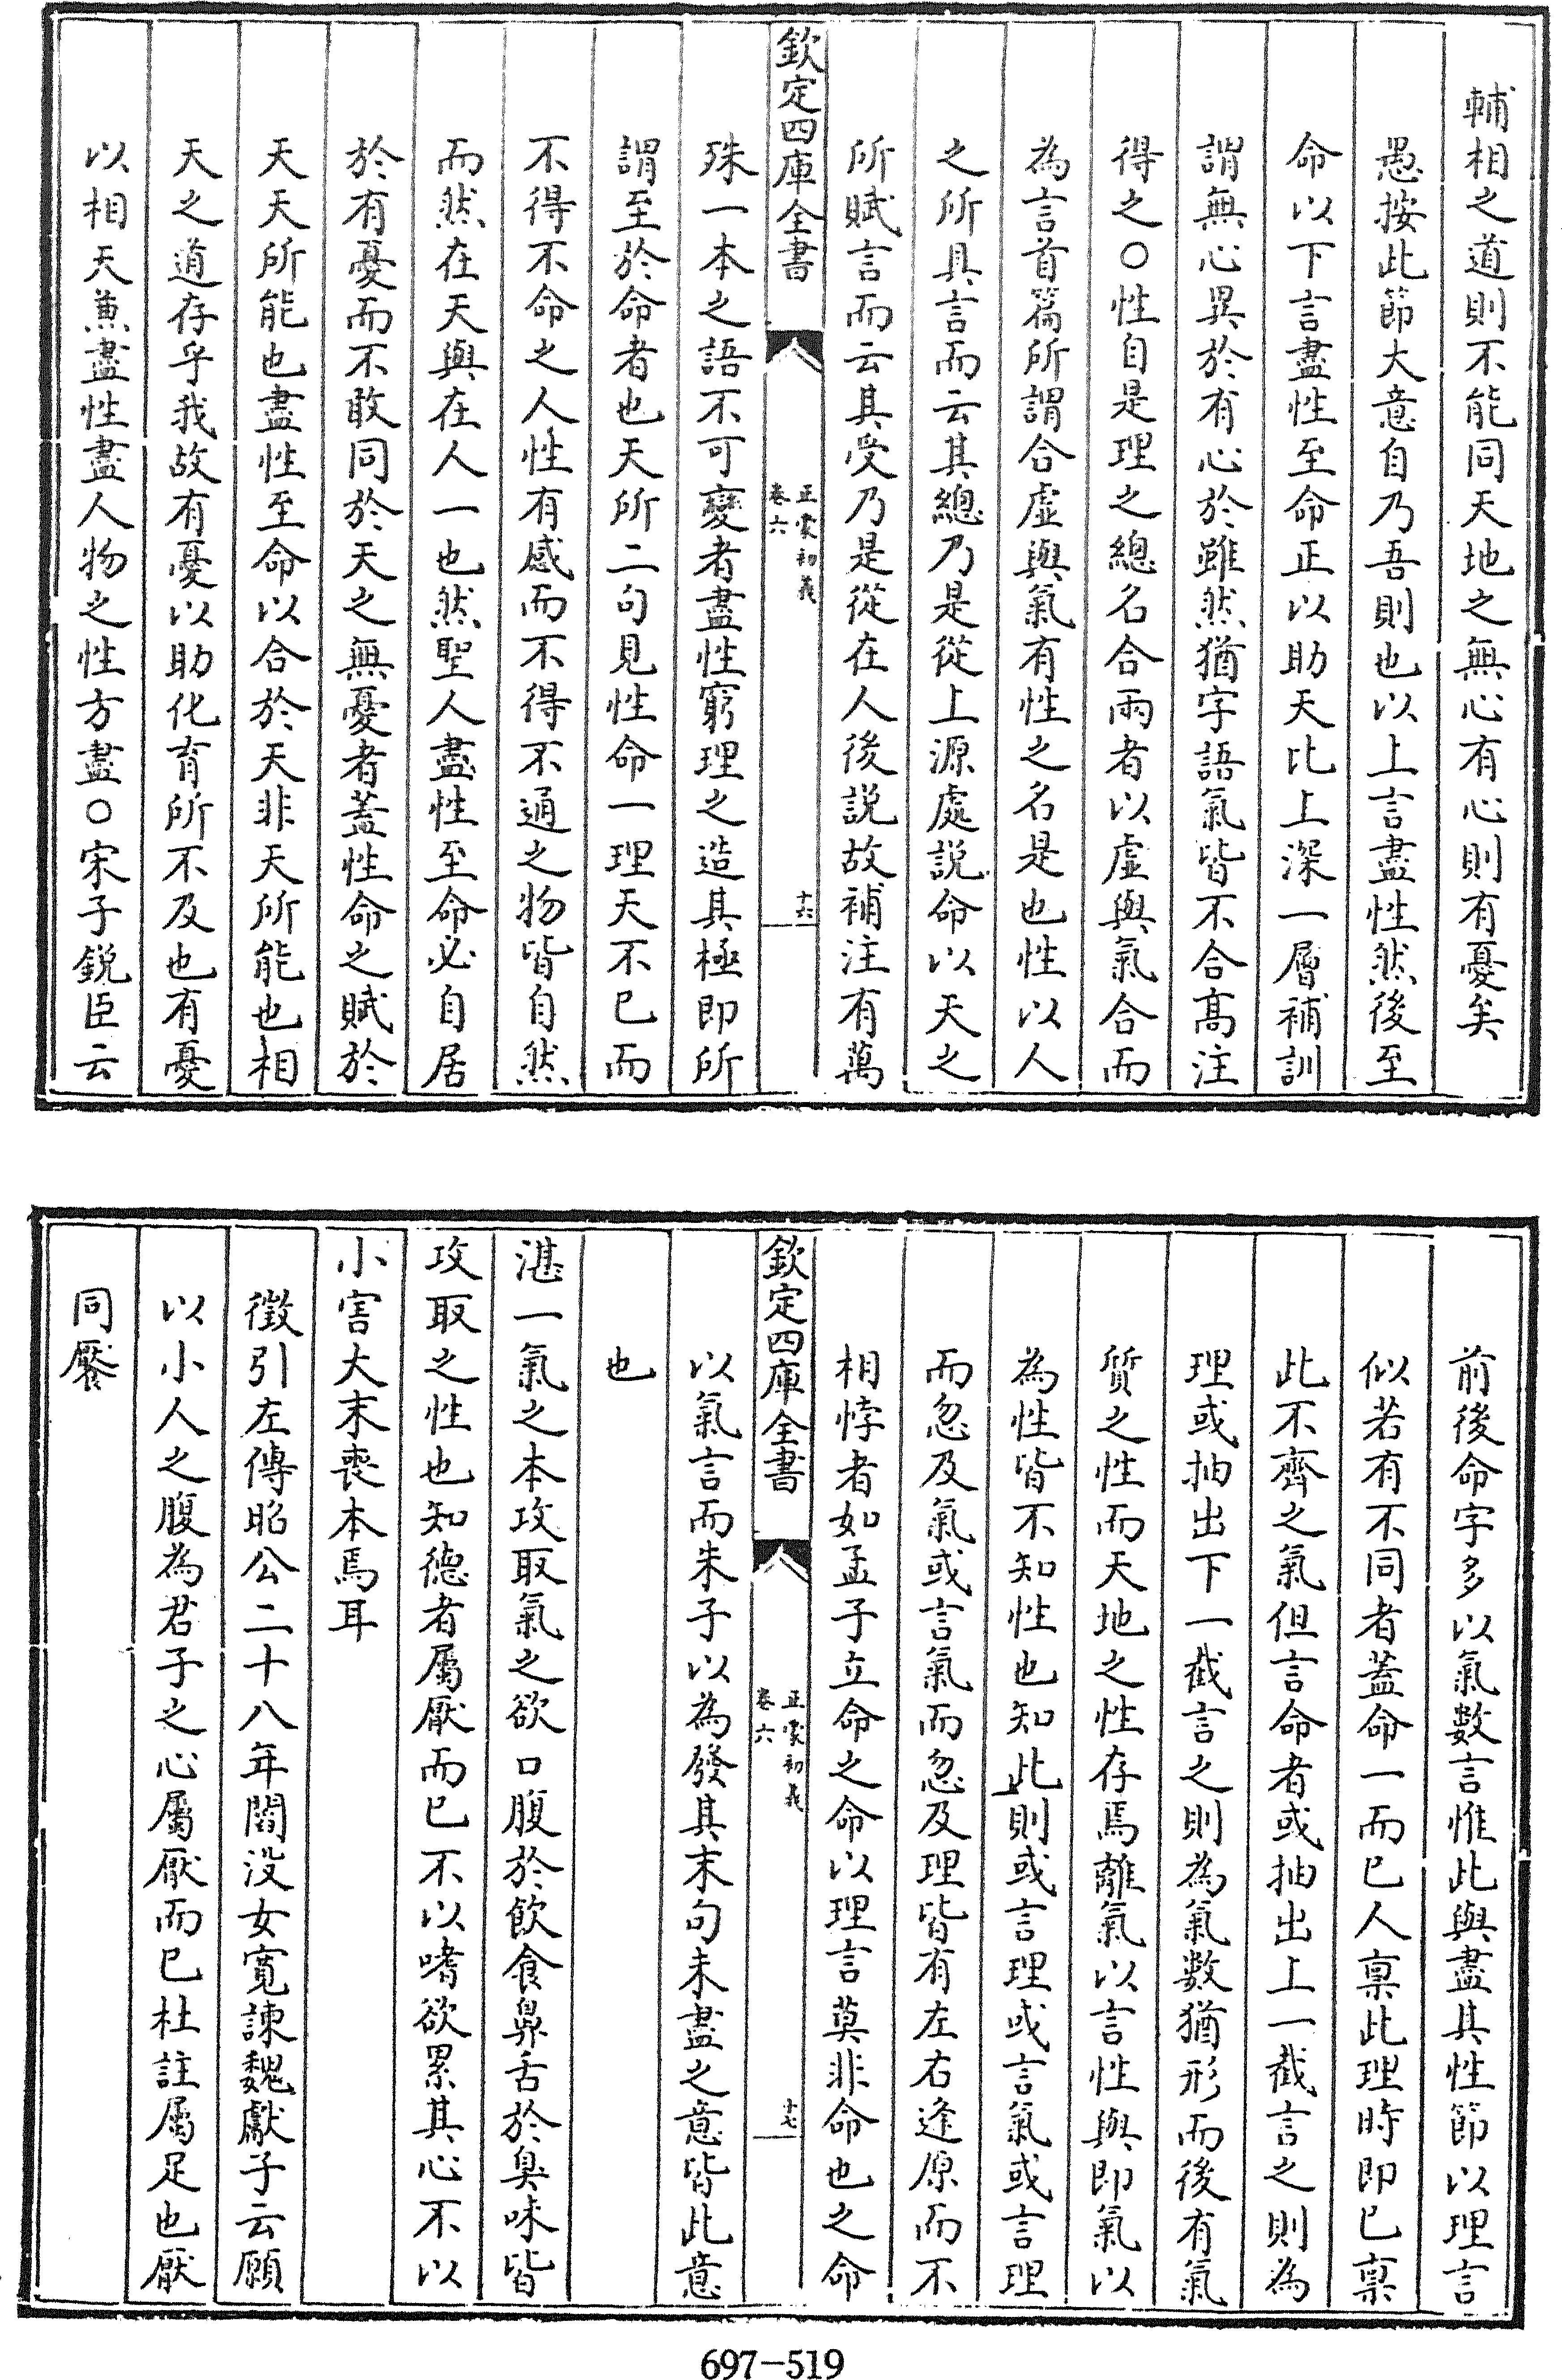 輔相之道則不能同天地之無心有心則有憂矣
愚按此節大意自乃吾則也以上言盡性然後至
命以下言盡性至命正以助天比上深一層補訓
謂無心異於有心於雖然猶字語氣皆不合髙注
得之○性自是理之總名合兩者以虛與氣合而
為言首篇所謂合虛與氣有性之名是也性以人
之所具言而云其總乃是從上源處説命以天之
所賦言而云其受乃是從在人後説故補注有萬
欽定四庫全書
正蒙初義
卷六
十六
殊一本之語不可變者盡性窮理之造其極即所
謂至於命者也天所二句見性命一理天不已而
不得不命之人性有感而不得不通之物皆自然
而然在天與在人一也然聖人盡性至命必自居
於有憂而不敢同於天之無憂者蓋性命之賦於
天天所能也盡性至命以合於天非天所能也相
天之道存乎我故有憂以助化育所不及也有憂
以相天兼盡性盡人物之性方盡○宋子鋭臣云
前後命字多以氣數言惟此與盡其性節以理言
似若有不同者蓋命一而已人禀此理時即已禀
此不齊之氣但言命者或抽出上一截言之則為
理或抽出下一截言之則為氣數猶形而後有氣
質之性而天地之性存焉離氣以言性與即氣以
為性皆不知性也知此則或言理或言氣或言理
而忽及氣或言氣而忽及理皆有左右逢原而不
相悖者如孟子立命之命以理言莫非命也之命
欽定四庫全書
正蒙初義
卷六
十七
以氣言而朱子以為發其末句未盡之意皆此意
也
湛一氣之本攻取氣之欲口腹於飲食鼻舌於臭味皆
攻取之性也知德者屬厭而已不以嗜欲累其心不以
小害大末喪本焉耳
徵引左傳昭公二十八年閻没女寛諫魏獻子云願
以小人之腹為君子之心屬厭而已杜註屬足也厭
同饜
697-519